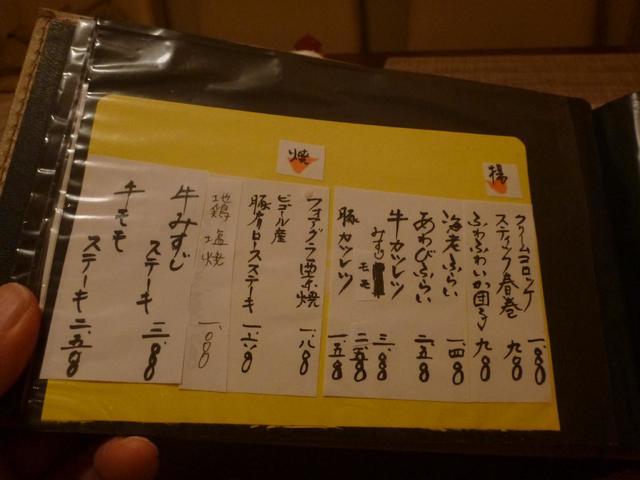 揚
クリームコロッケ 一、〇〇
スティック春巻 九〇
ふわふわいか団子 九〇
海老ふらい 一、四〇
あわびふらい 二、五〇
牛カツレツ
みすじ 三、〇
モモ 二、五〇
豚カツレツ 一、五〇
焼
フォアグラ西京焼 一、八〇
ビゴール産
豚肩ロースステーキ 一、六〇
地鶏塩焼 一、〇〇
牛みすじ
ステーキ 三、〇
牛モモ
ステーキ 二、五〇